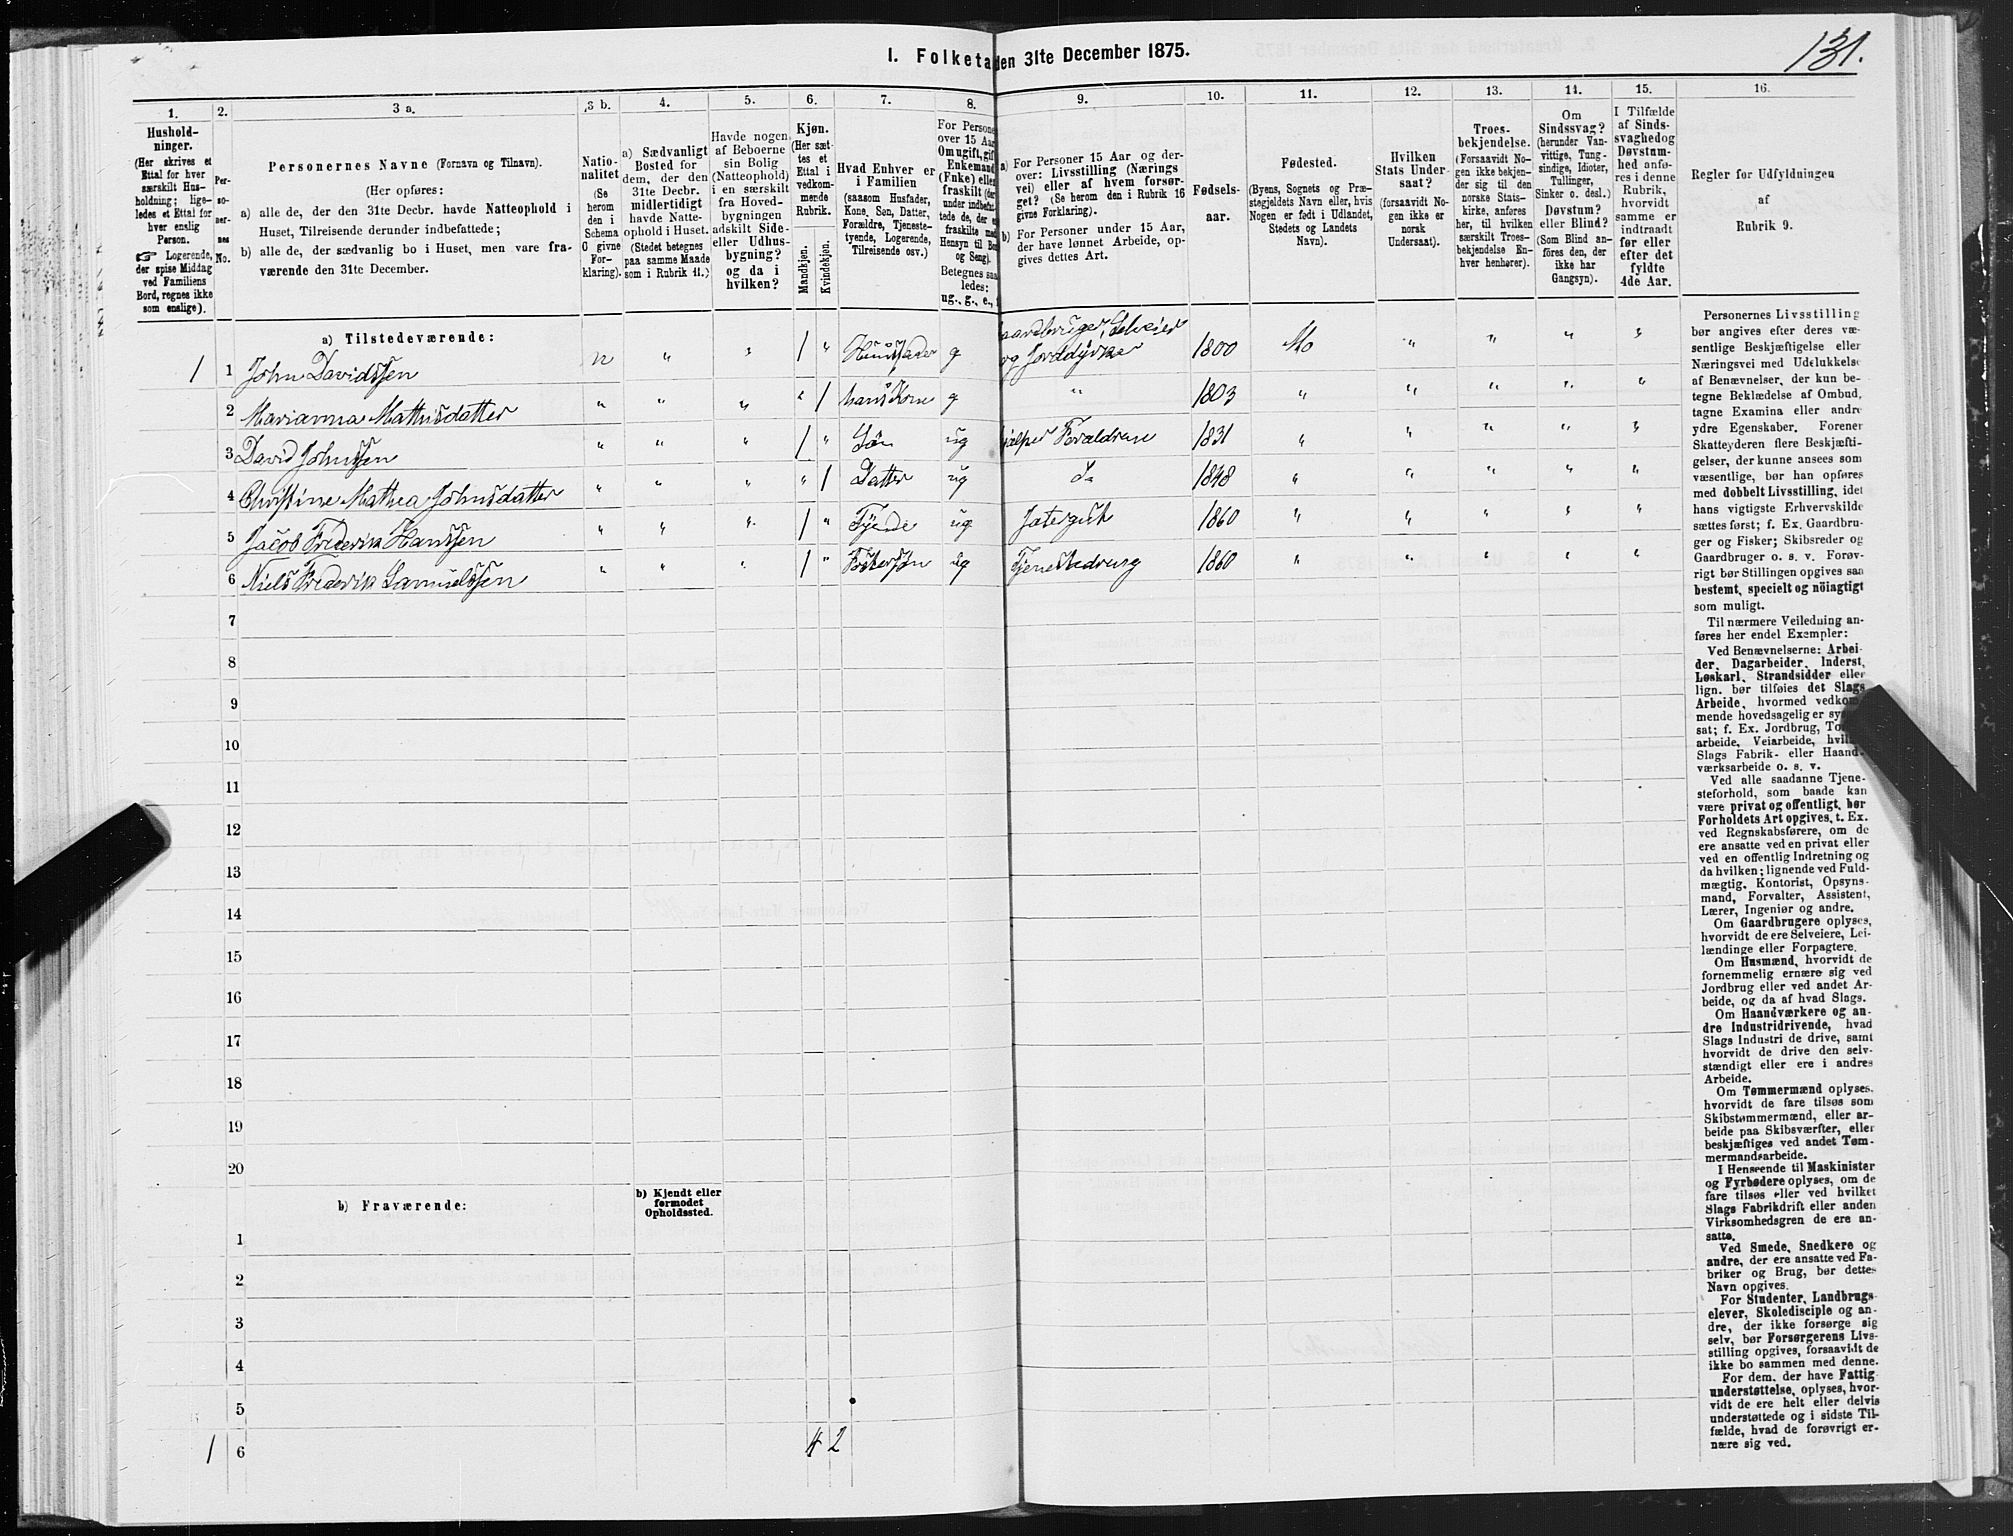 131.
I. Folketa
den 31te December 1875.
1.
2.
3 a.
3 b.
4.
5.
6.
7.
8.
9.
10.
11.
12.
13.
14.
15.
16.
Hushold-
ninger.
(Her skrives et
Ettal for hver
særskilt Hus-
holdning; lige-
ledes et Ettal for
hver enslig
Person.
☞ Logerende,
der spise Middag
ved Familiens
Bord, regnes ikke
som enslige).
Per-
so-
ner-
nes
No.
Personernes Navne (Fornavn og Tilnavn).
(Her opføres:
a) alle de, der den 31te Decbr. havde Natteophold i
Huset, Tilreisende derunder indbefattede;
b) alle de, der sædvanlig bo i Huset, men vare fra-
værende den 31te December.
Natio-
nalitet
(Se
herom
den i
Schema
C givne
For-
klaring).
a) Sædvanligt
Bosted for
dem, der den
31te Decbr.
midlertidigt
havde Natte-
ophold i Huset.
(Stedet betegnes
paa samme Maade
som i Rubrik 11.)
Havde nogen
af Beboerne
sin Bolig
(Natteophold)
i en særskilt
fra Hoved-
bygningen
adskilt Side-
eller Udhus-
bygning?
og da i
hvilken?
Kjøn.
(Her sæt-
tes et
Ettal i
vedkom-
mende
Rubrik.
Mandkjøn.
Kvindekjøn.
Hvad Enhver er
i Familien
(saasom Husfader,
Kone, Søn, Datter,
Forældre, Tjeneste-
tyende, Logerende,
Tilreisende osv.)
For Persone
over 15 Aar
Om ugift, gif
Enkemand
(Enke) eller
fraskilt (der
under indbefat
tede de, der e
fraskilte med
Hensyn til Bo
og Seng).
Betegnes saa
ledes:
ug., g., e., f
a) For Personer 15 Aar og der-
over: Livsstilling (Nærings
vei) eller af hvem forsør-
get? (Se herom den i Rubrik 16
givne Forklaring).
b) For Personer under 15 Aar,
der have lønnet Arbeide, op-
gives dettes Art.
Fødsels-
aar.
Fødested.
(Byens, Sognets og Præ-
stegjeldets Navn eller, hvis
Nogen er født i Udlandet,
Stedets og Landets
Navn).
Hvilken
Stats Under-
saat?
(forsaavidt No-
gen ikke er
norsk
Undersaat).
Troes-
bekjendelse.
(Forsaavidt No-
gen ikke bekjen-
der sig til den
norske Stats-
kirke, anføres
her, til hvilken
særskilt Troes-
bekjendelse En-
hver henhører).
Om
Sindssvag?
(herunder Van-
vittige, Tung-
sindige, Idioter,
Tullinger,
Sinker o. desl.)
Døvstum?
eller Blind?
(Som Blind an-
føres den, der
ikke har
Gangsyn).
I Tilfælde
af Sinds-
svaghed og
Døvstum-
hed anfø-
res i denne
Rubrik,
hvorvidt
samme er
indtraadt
før eller
efter det
fyldte
4de Aar.
Regler for Udfyldningen
af
Rubrik 9.
a) Tilstedeværende:
1 1 John Davidssen n " " 1 " Huusfader g aardbruger, Selveier
og Jorddyrker 1800 Mo " " " "
2 Marianna Mathisdatter " " " " 1 hans Kone g " 1803 " " " " "
3 David Johnssen " " " 1 " Søn ug jælper Forældrene 1831 " " " " "
4 Christine Mathea Johnsdatter " " " " 1 Datter ug Do 1848 " " " " "
5 Jacob Frederik Hanssen " " " 1 " Tyende ug Jætergut 1860 " " " " "
6 Niels Frederik Samuelssen " " " 1 " Fostersøn ug Tjenestedreng 1860 " " " " "
7
8
9
10
11
12
13
14
15
16
17
18
19
20
b) Fraværende:
b) Kjendt eller
formodet
Opholdssted.
1
2
3
4
5
1 6 4 2
Personernes Livsstilling
bør angives efter deres væ-
sentlige Beskjæftigelse eller
Næringsvei med Udelukkelse
af Benævnelser, der kun be-
tegne Beklædelse af Ombud,
tagne Examina eller andre
ydre Egenskaber. Forener
Skatteyderen flere Beskjæfti-
gelser, der kunne ansees som
væsentlige, bør han opføres
med dobbelt Livsstilling, idet
hans vigtigste Erhvervskilde
sættes først; f. Ex. Gaardbru-
ger og Fisker; Skibsreder og
Gaardbruger o. s. v. Forøv-
rigt bør Stillingen opgives saa
bestemt, specielt og nöiagtigt
som muligt.
Til nærmere Veiledning an-
føres her endel Exempler:
Ved Benævnelserne: Arbei-
der, Dagarbeider, Inderst,
Løskarl, Strandsidder eller
lign. bør tilføies det Slags
Arbeide, hvormed vedkom-
mende hovedsagelig er sy
sat; f. Ex. Jordbrug, To
arbeide, Veiarbeide, hvil
Slags Fabrik- eller Haand-
værksarbeide o. s. v.
Ved alle saadanne Tjene-
steforhold, som baade kan
være privat og offentligt, bør
Forholdets Art opgives, t. Ex.
ved Regnskabsførere, om de
ere ansatte ved en privat eller
ved en offentlig Indretning og
da hvilken; lignende ved Fuld-
mægtig, Kontorist, Opsyns-
mand, Forvalter, Assistent,
Lærer, Ingeniør og andre.
Om Gaardbrugere oplyses,
hvorvidt de ere Selveiere, Lei-
lændinge eller Forpagtere.
Om Husmænd, hvorvidt de
fornemmelig ernære sig ved
Jordbrug eller ved andet Ar-
beide, og da af hvad Slags.
Om Haandværkere og an-
dre Industridrivende, hvad
Slags Industri de drive, samt
hvorvidt de drive den selv-
stændigt eller ere i andres
Arbeide.
Om Tømmermænd oplyses,
hvorvidt de fare tilsøs som
Skibstømmermænd, eller ar-
beide paa Skibsværfter, eller
beskjæftiges ved andet Tøm-
mermandsarbeide.
I Henseende til Maskinister
og Fyrbødere oplyses, om de
fare tilsøs eller ved hvilket
Slags Fabrikdrift eller anden
Virksomhedsgren de ere an-
satte.
Ved Smede, Snedkere og
andre, der ere ansatte ved Fa-
briker og Brug, bør dettes
Navn opgives.
For Studenter, Landbrugs-
elever, Skoledisciple og an-
dre, der ikke forsørge sig
selv, bør Forsørgerens Livs-
stilling opgives, forsaavidt de
ikke bo sammen med denne.
For dem, der have Fattig-
understøttelse, oplyses, hvor-
vidt de ere helt eller delvis
understøttede og i sidste Til-
fælde, hvad de forøvrigt er-
nære sig ved.